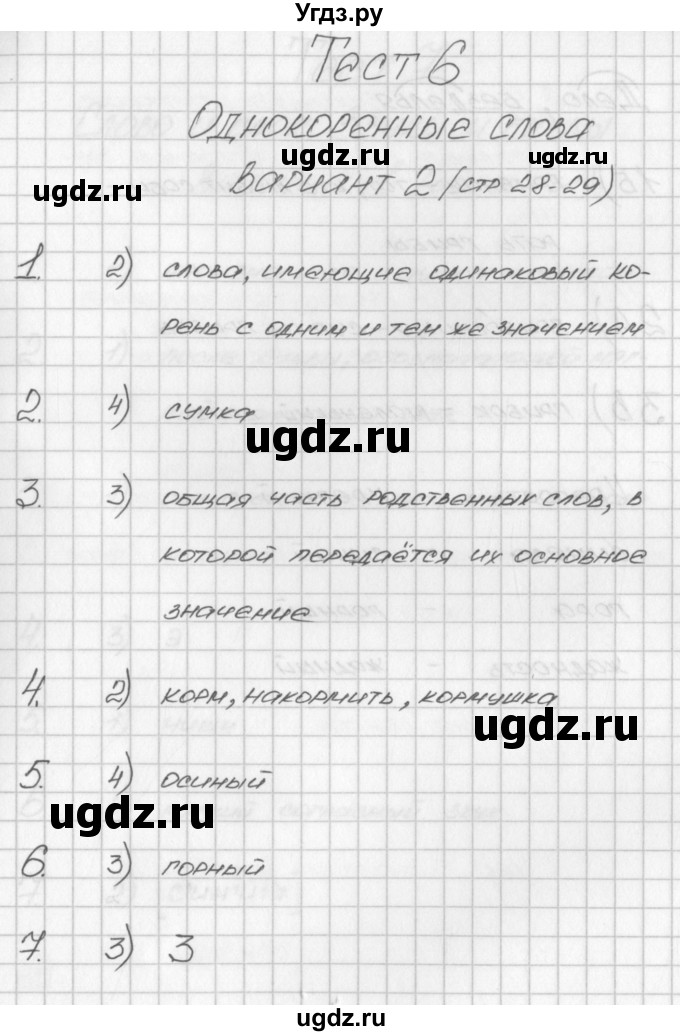 Угдз.ру
Тест 6
Однокоренные слова
ugdz.ru ugdz.ru
ugdz.ru
Вариант 2 (стр 28-29)
1. 2) слова, имеющие одинаковый ко-
рень с одним и тем же значением
2. 4) сумка
ugdz.ru
3. 3) общая часть родственных слов, в
которой передаётся их основное
значение
4. 2) корм, накормить, кормушка
ugdz.ru
5. 4) осиный
ugdz.ru
6. 3) горный
7. 3) 3
ugdz.ru